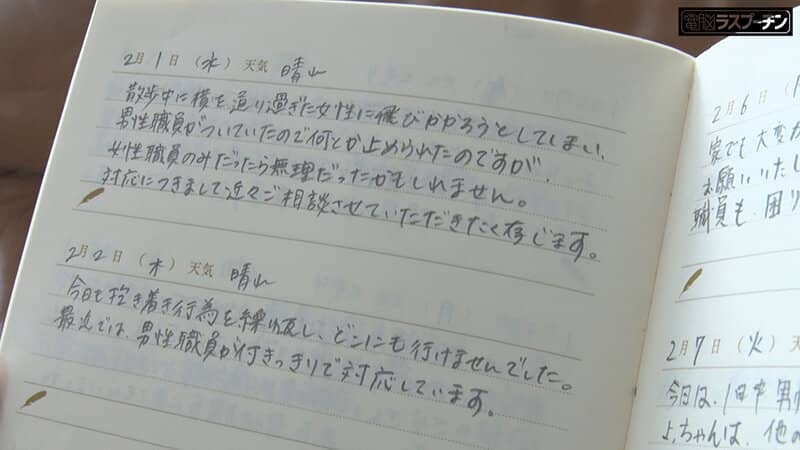 電脳ラスプーチン
2月1日(水)天気 晴山
散歩中に横を通り過ぎた女性に飛びかかろうとしてしまい、
男性職員がついていたので何とか止められたのですが、
女性職員のみだったら無理だったかもしれません。
対応につきまして近々ご相談させていただきたく存じます。
2月2日(木)天気 晴山
今日も抱き着き行為を繰り返し、どこにも行けませんでした。
最近では、男性職員が付きっきりで対応しています。
2月6日(月
家でも大変な
お願いいたし
職員も、困り
2月7日(火)天
今日は、1日中男性
よっちゃんは、他の